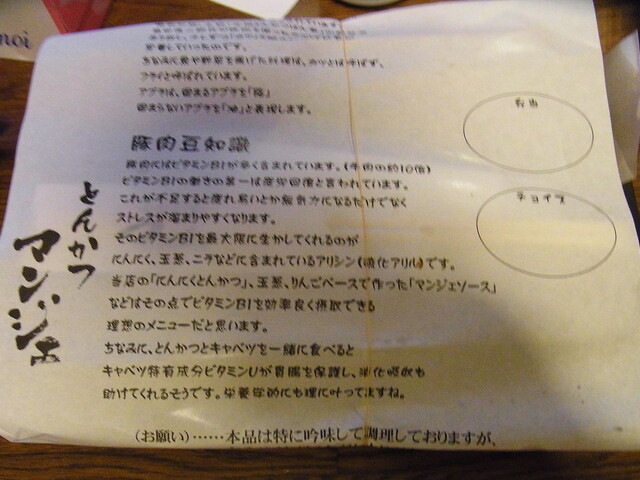 noi
定着していったのです。
ちなみに魚や野菜を揚げた料理は、カツとは呼ばず、
フライと呼ばれています。
アブラは、固まるアブラを「脂」
固まらないアブラを「油」と表現します。
豚肉豆知識
豚肉にはビタミンB1が多く含まれています。(牛肉の約10倍)
ビタミンB1の働きの第一は疲労回復と言われています。
これが不足すると疲れ易いとか無気力になるだけでなく
ストレスが溜まりやすくなります。
そのビタミンB1を最大限に生かしてくれるのが
にんにく、玉葱、ニラなどに含まれているアリシン(硫化アリル)です。
当店の「にんにくとんかつ」、玉葱、りんごベースで作った「マンジェソース」
などはその点でビタミンB1を効率良く摂取できる
理想のメニューだと思います。
ちなみに、とんかつとキャベツを一緒に食べると
キャベツ特有成分ビタミンUが胃腸を保護し、消化吸収も
助けてくれるそうです。栄養学的にも理に叶ってますね。
(お願い)……本品は特に吟味して調理しておりますが、
とんかつ
マンジェ
弁当
チョイス